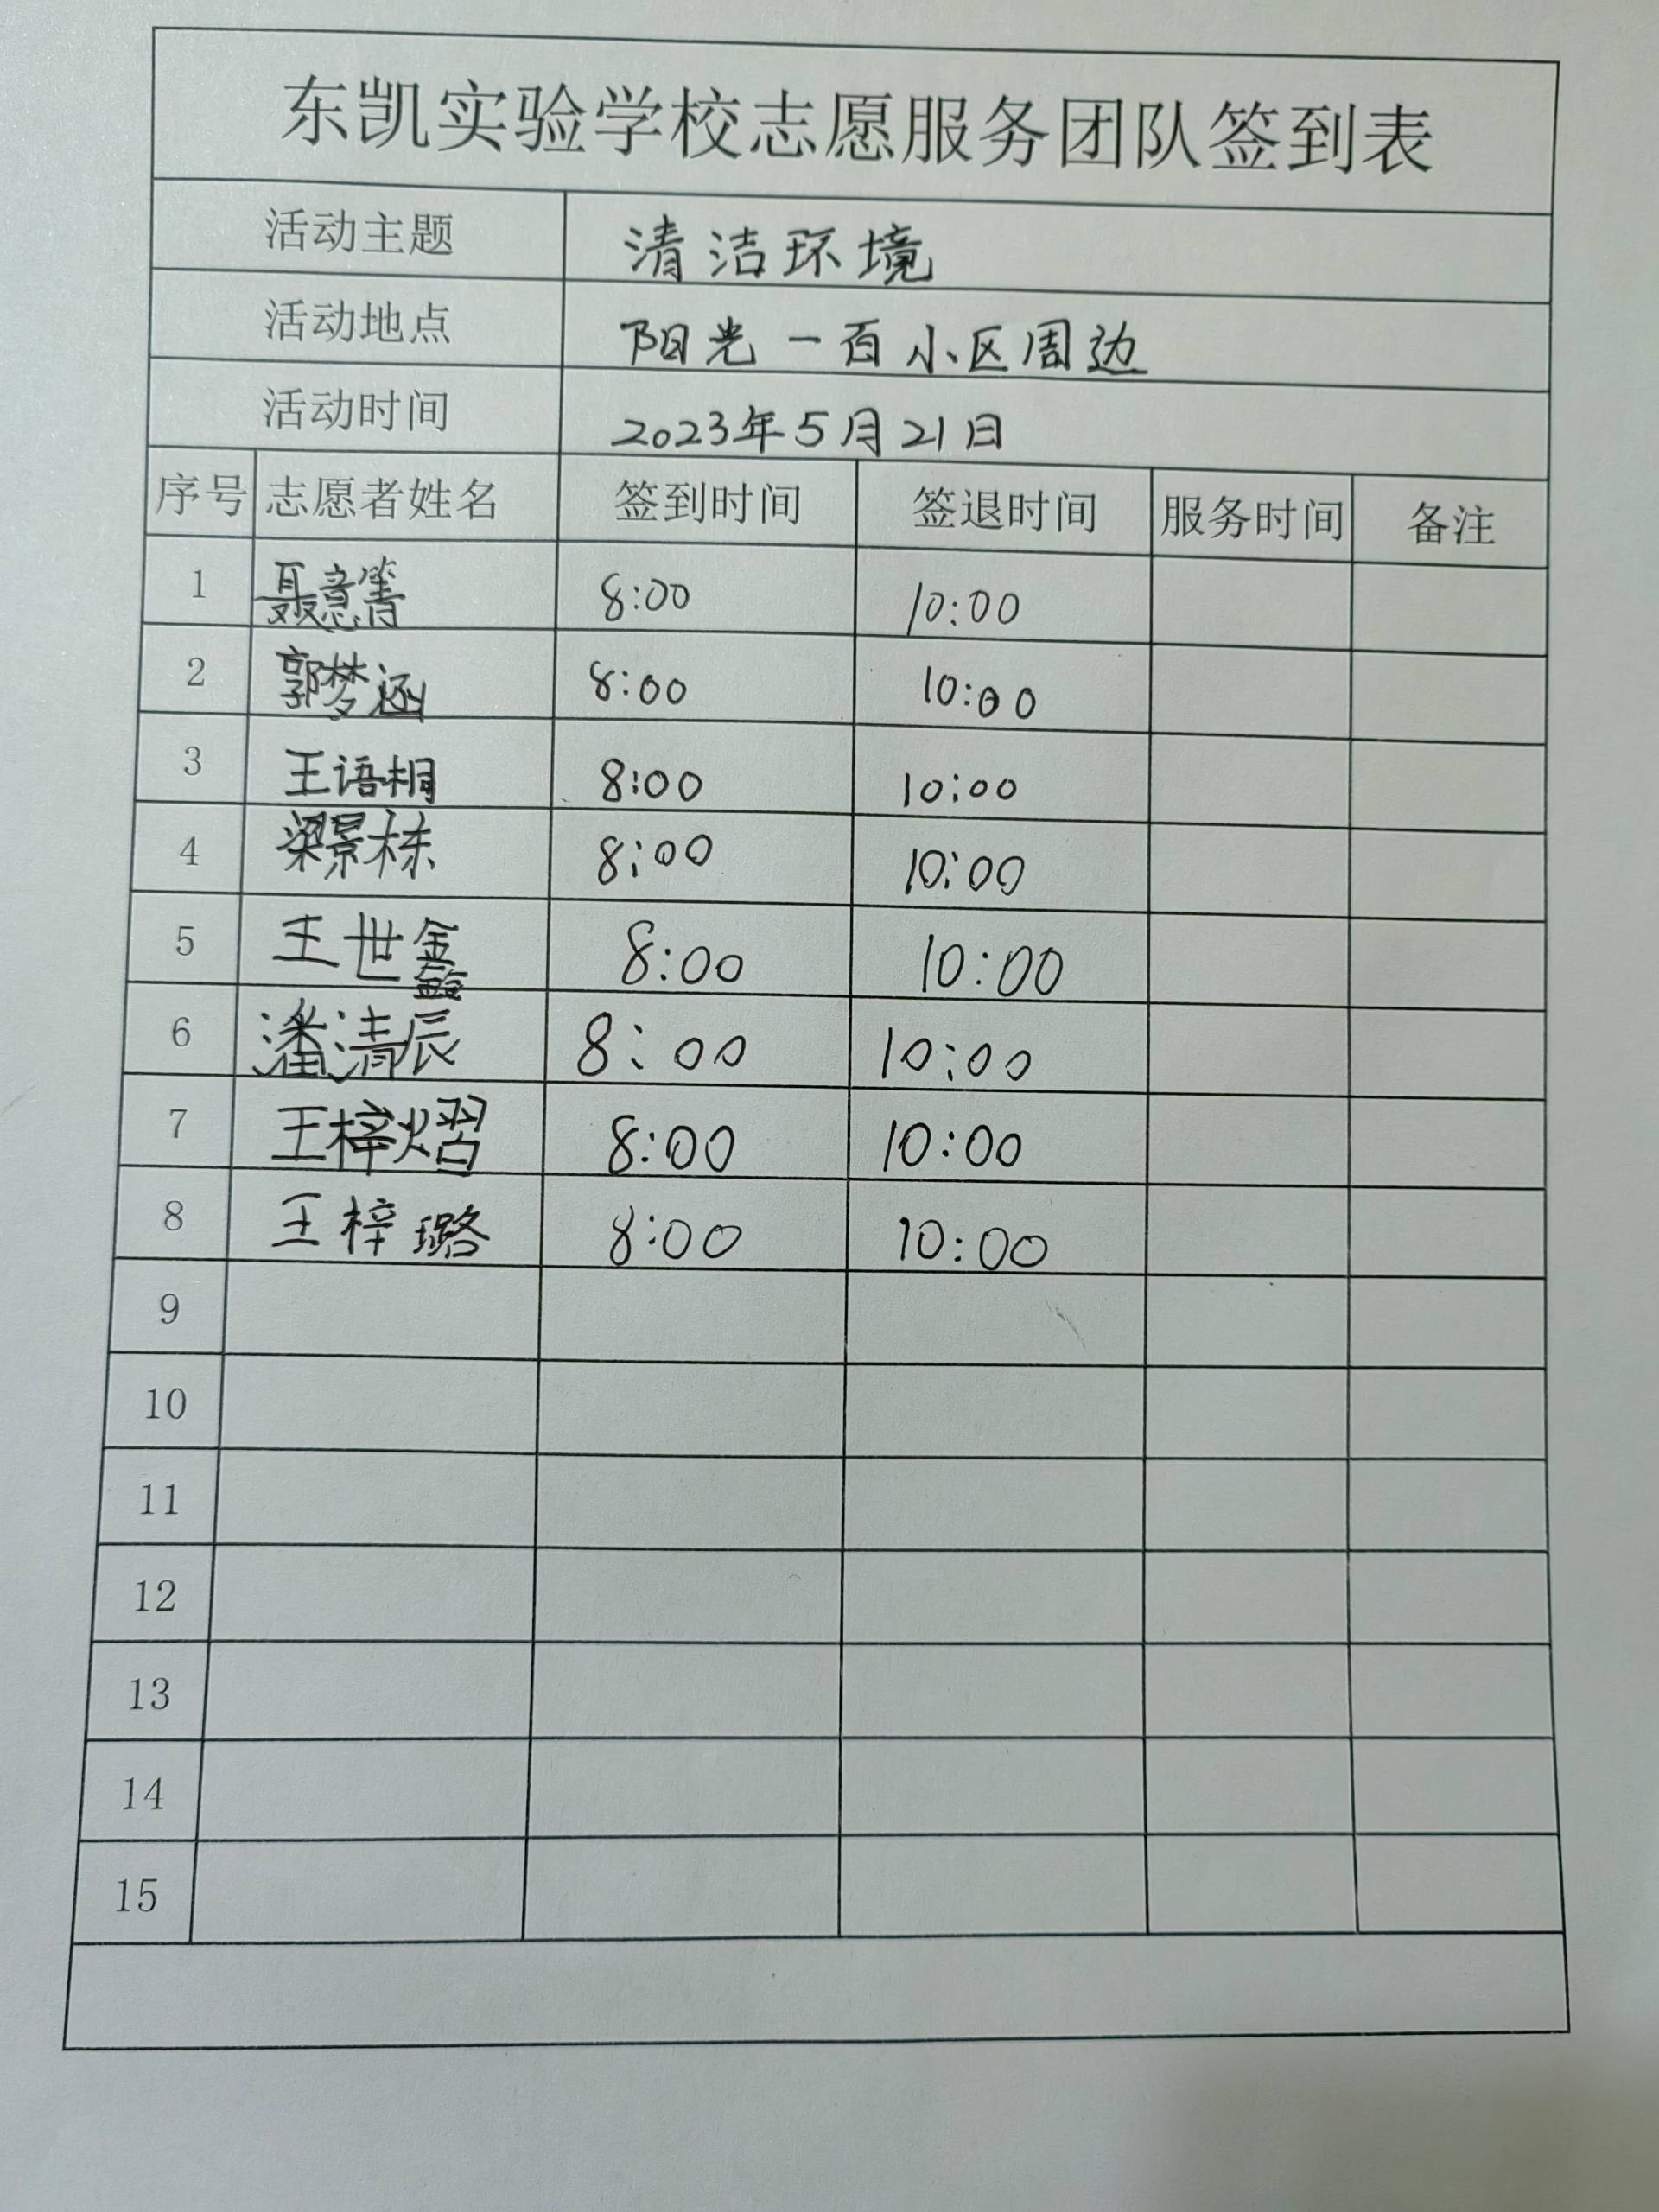 东凯实验学校志愿服务团队签到表
活动主题 清洁环境
活动地点 阳光一百小区周边
活动时间 2023年5月21日
序号 志愿者姓名 签到时间 签退时间 服务时间 备注
1 聂意箐 8:00 10:00
2 郭梦涵 8:00 10:00
3 王语桐 8:00 10:00
4 梁景栋 8:00 10:00
5 王世鑫 8:00 10:00
6 潘清辰 8:00 10:00
7 王梓熠 8:00 10:00
8 王梓璐 8:00 10:00
9
10
11
12
13
14
15